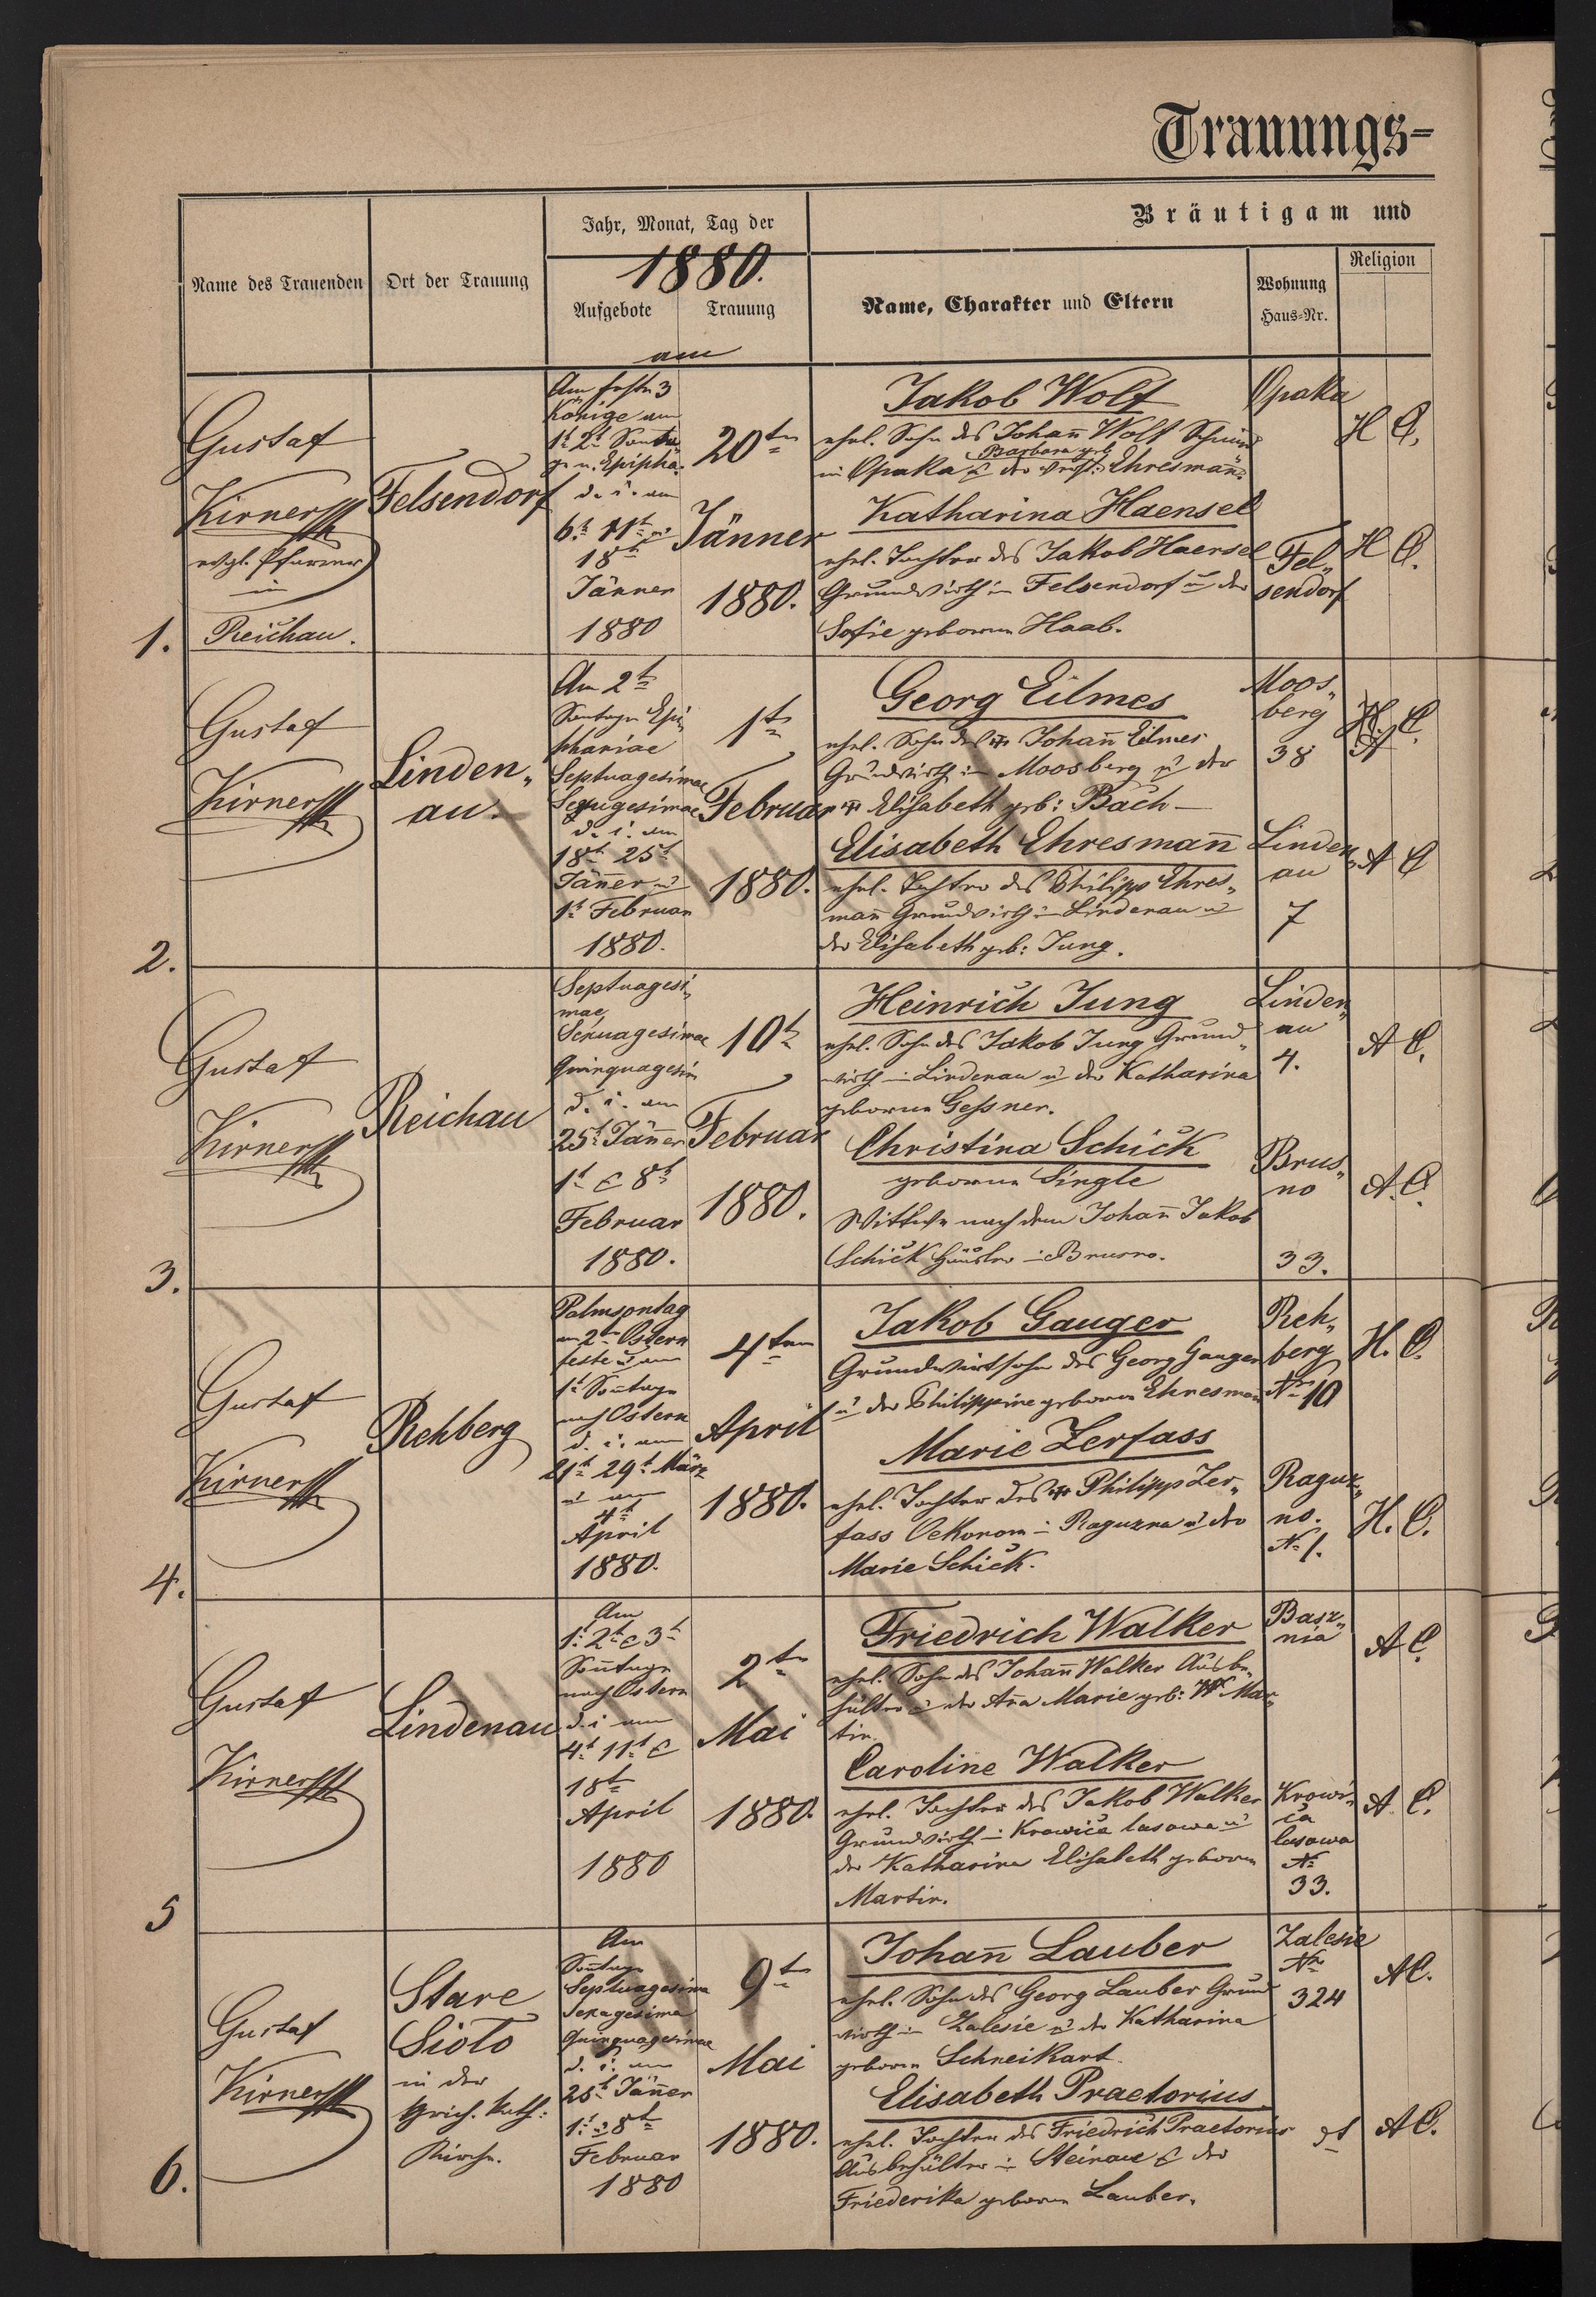 Trauungs-
Name des Trauenden
Ort der Trauung
Jahr, Monat, Tag der
1880.
Aufgebote
Trauung
am
Bräutigam und
Name, Charakter und Eltern
Wohnung
Haus-Nr.
Religion
1.
Gustaf
Kirner
evgl. Pfarrer
in
Reichau.
Felsendorf
Am feste 3
Könige am
1t 2t Sonta
ge n. Epipha.
d. i. am
6t 11t u
18t
Jänner
1880
20ten
Jänner
1880.
Jakob Wolf
ehel. Sohn des Johann Wolf
Barbara geb
in Opaka & der Ehresmann
Katharina Haensel
ehel. Tochter des Jakob Haensel
Grundwirth in Felsendorf u der
Sofie geborene Haab.
Opaka
Fel„
sendorf
H C.
H C.
2.
Gustaf
Kirner
Linden„
au.
Am 2t
Sontage Epi„
phaniae
Septuagesimae
Sexagesimae
d. i. am
18t 25t
Jänner u
1t Februar
1880.
1t
Februar
1880.
Georg Eilmes
ehel. Sohn des Johann Eilmes
Grundwirth in Moosberg u der
Elisabeth geb: Bach
Elisabeth Ehresmann
ehel. Tochter des Philipp Ehres„
mann Grundwirth in Lindenau u
der Elisabeth geb: Jung.
Moos„
berg
38
Linden„
au
7
H C.
A C
3.
Gustaf
Kirner
Reichau
Septuagesi„
mae
Sexuagesimae
Quinquagesim
d. i. am
25t Jänner
1t & 8t
Februar
1880.
10t
Februar
1880.
Heinrich Jung
ehel. Sohn des Jakob Jung Grund„
wirth in Lindenau u der Katharina
geborene Gessner.
Christina Schick
geborene Single
Wittwe nach dem Johann Jakob
Schick Häusler in Brusno.
Linden„
au
4.
Brus„
no
33.
A C.
A. C.
4.
Gustaf
Kirner
Rehberg
Palmsontag
am 2ten Ostern
feste u am
1t Sontage
nach Ostern
d. i. am
21t 29t März
u am
4t
April
1880.
4ten
April
1880.
Jakob Gauger
Grundwirtsohn des Georg Gauger
u der Philippine geborene Ehresman
Marie Zerfass
ehel. Tochter des Philipp Zer„
fass Oekonom in Raguzna u der
Marie Schick.
Reh„
berg
No 10
Raguz„
no.
No 1.
H. C.
H. C.
5
Gustaf
Kirner
Lindenau
Am
1t 2t & 3t
Sontage
nach Ostern
d. i am
4t 11t &
18t
April
1880
2ten
Mai
1880.
Friedrich Walker
ehel. Sohn des Johann Walker Ausbe„
hälter u der Anna Marie geb: Mar„
tin.
Caroline Walker
ehel. Tochter des Jakob Walker
Grundwirth in Krowica lasowa u
der Katharina Elisabeth geborene
Martin.
Basz„
nia
Krowi„
ca
lasowa
No
33.
A C.
A. C.
6.
Gustaf
Kirner
Stare
Sioło
in der
grich. kath:
Kirche.
Am
Sontage
Septuagesima
Sexagesima
Quinquagesimae
d. i. am
25t Jänner
1t u 8t
Februar
1880
9t
Mai
1880.
Johann Lauber
ehel. Sohn des Georg Lauber Grund
wirth in Zalesie u der Katharina
geborene Schneikart.
Elisabeth Praetorius
ehel. Tochter des Friedrich Praetorius
Ausbehälter in Steinau & der
Friederika geborene Lauber.
Zalesie
No
324
A C.
A C.